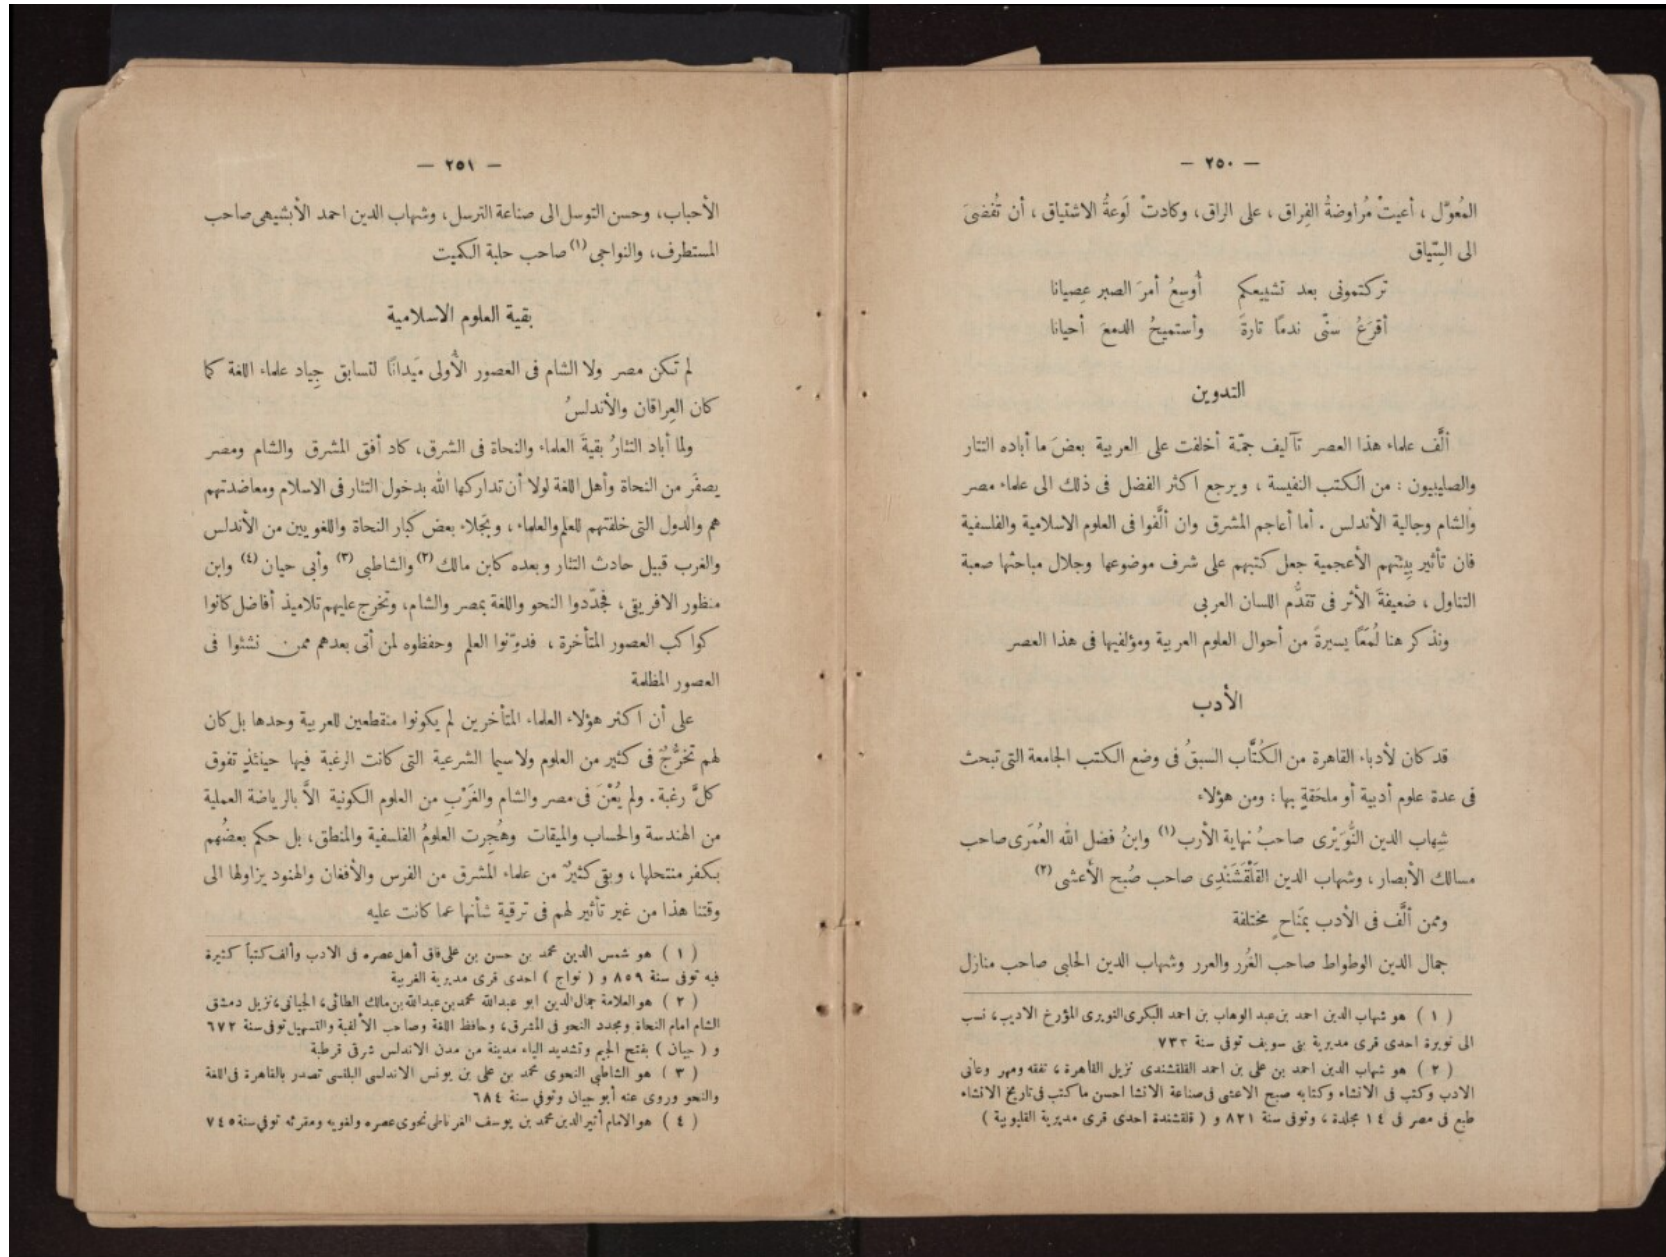 — ٢٥٠ —
المُعوَّل ، أعيتْ مُراوضةُ الفِراق ، على الراق، وكادتْ لَوعةُ الاشتياق ، أن تُفضىَ
الى السِّياق
تركتمونى بعد تشييعكم أُوسِعُ أمرَ الصبر عِصيانا
أقرَعُ سنّى ندمًا تارةً وأستميحُ الدمعَ أحيانا
التدوين
ألَّف علماء هذا العصر تآليف جمّة أخلفت على العربية بعضَ ما أباده التتار
والصليبيون : من الكتب النفيسة ، ويرجع اكثر الفضل فى ذلك الى علماء مصر
والشام وجالية الأندلس . أما أعاجم المشرق وان ألَّفوا فى العلوم الاسلامية والفلسفية
فان تأثير بِيئتهم الأعجمية جعل كتبهم على شرف موضوعها وجلال مباحثها صعبة
التناول ، ضعيفةَ الأثر فى تقدُّم اللسان العربى
ونذكر هنا لُمَعًا يسيرةً من أحوال العلوم العربية ومؤلفيها فى هذا العصر
الأدب
قد كان لأدباء القاهرة من الكُتَّاب السبقُ فى وضع الكتب الجامعة التى تبحث
فى عدة علوم أدبية أو ملحَقةٍ بها : ومن هؤلاء
شِهاب الدين النُّوَيْرى صاحبُ نهاية الأرب (١) وابنُ فضل الله العُمَرى صاحب
مسالك الأبصار ، وشهاب الدين القَلْقَشَنْدِى صاحب صُبح الأعشى (٢)
وممن ألَّف فى الأدب بمَناحٍ مختلفة
جمال الدين الوطواط صاحب الغُرر والعرر وشهاب الدين الحلبى صاحب منازل
( ١ ) هو شهاب الدين احمد بن عبد الوهاب بن احمد البكرى النويرى المؤرخ الاديب، نسب
الى نويرة احدى قرى مديرية بنى سويف توفى سنة ٧٣٣
( ٢ ) هو شهاب الدين احمد بن على بن احمد القلقشندى نزيل القاهرة ، تفقه ومهر وعانى
الادب وكتب فى الانشاء وكتابه صبح الاعشى فى صناعة الانشا احسن ما كتب فى تاريخ الانشاء
طبع فى مصر فى ١٤ مجلدة ، وتوفى سنة ٨٢١ و ( قلقشندة احدى قرى مديرية القليوبية )
— ٢٥١ —
الأحباب، وحسن التوسل الى صناعة الترسل، وشهاب الدين احمد الأبشيهى صاحب
المستطرف، والنواجى (١) صاحب حلبة الكميت
بقية العلوم الاسلامية
لم تكن مصر ولا الشام فى العصور الأُولى مَيدانًا لتسابق جِياد علماء اللغة كما
كان العِراقان والأندلسُ
ولما أباد التتارُ بقيةَ العلماء والنحاة فى الشرق، كاد أفق المشرق والشام ومصر
يصفَر من النحاة وأهل اللغة لولا أن تداركها الله بدخول التتار فى الاسلام ومعاضدتهم
هم والدول التى خلفتهم للعلم والعلماء ، وبجَلاء بعض كبار النحاة واللغويين من الأندلس
والغرب قبيل حادث التتار وبعده كابن مالك (٢) والشاطبى (٣) وأبى حيان (٤) وابن
منظور الافريقى، فجدّدوا النحو واللغة بمصر والشام، وتخرج عليهم تلاميذ أفاضل كانوا
كواكب العصور المتأخرة ، فدوّنوا العلم وحفظوه لمن أتى بعدهم ممن نشئوا فى
العصور المظلمة
على أن اكثر هؤلاء العلماء المتأخرين لم يكونوا منقطعين للعربية وحدها بل كان
لهم تخرُّجٌ فى كثير من العلوم ولاسيما الشرعية التى كانت الرغبة فيها حينئذٍ تفوق
كلَّ رغبة . ولم يُعْنَ فى مصر والشام والغَرْبِ من العلوم الكونية الاَّ بالرياضة العملية
من الهندسة والحساب والميقات وهُجِرت العلومُ الفلسفية والمنطق، بل حكم بعضُهم
بكفر منتحلها ، وبقى كثيرٌ من علماء المشرق من الفرس والأفغان والهنود يزاولها الى
وقتنا هذا من غير تأثير لهم فى ترقية شأنها عما كانت عليه
( ١ ) هو شمس الدين محمد بن حسن بن على فاق أهل عصره فى الادب وألف كتباً كثيرة
فيه توفى سنة ٨٥٩ و ( نواج ) احدى قرى مديرية الغربية
( ٢ ) هو العلامة جمال الدين ابو عبدالله محمد بن عبدالله بن مالك الطائى، الجيانى، نزيل دمشق
الشام امام النحاة ومجدد النحو فى المشرق، وحافظ اللغة وصاحب الألفية والتسهيل توفى سنة ٦٧٢
و ( جيان ) بفتح الجيم وتشديد الياء مدينة من مدن الاندلس شرقى قرطبة
( ٣ ) هو الشاطبى النحوى محمد بن على بن يونس الاندلسى البلنسى تصدر بالقاهرة فى اللغة
والنحو وروى عنه أبو حيان وتوفي سنة ٦٨٤
( ٤ ) هو الامام أثير الدين محمد بن يوسف الغرناطى نحوى عصره ولغويه ومقرئه توفي سنة ٧٤٥